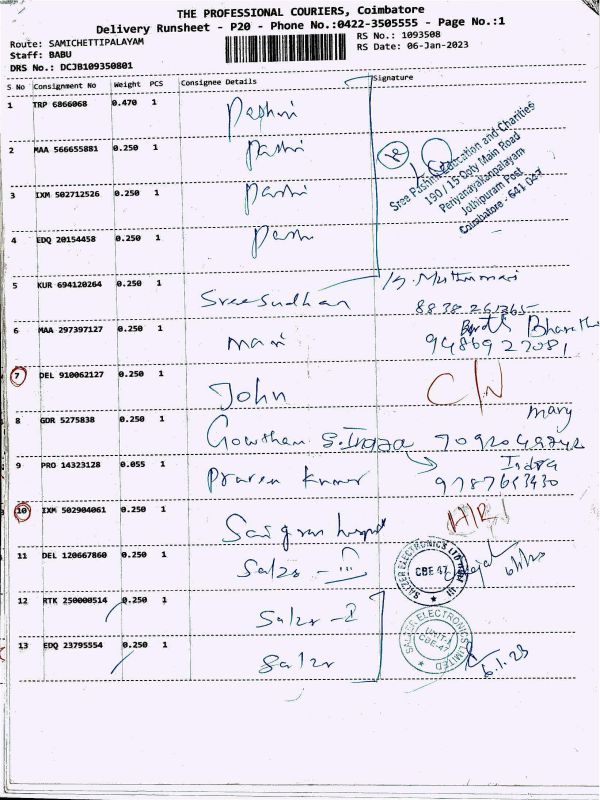 THE PROFESSIONAL COURIERS, Coimbatore
Delivery Runsheet - P20 - Phone No.:0422-3505555 - Page No.:1
Route: SAMICHETTIPALAYAM
RS No.: 1093508
Staff: BABU
RS Date: 06-Jan-2023
DRS No.: DCJB109350801
S No Consignment No Weight PCS Consignee Details Signature
1 TRP 6866068 0.470 1
2 MAA 566655881 0.250 1
3 IXM 502712526 0.250 1
4 EDQ 20154458 0.250 1
Sree Pushni Education and Charities
190 / 13 Ooty Main Road
Periyanayakanpalayam
Jothipuram Post
Coimbatore - 641 047
5 KUR 694120264 0.250 1 Sreesudhan
6 MAA 297397127 0.250 1 Mani Bharath
9486927081
7 DEL 910062127 0.250 1 John C/N
Mary
8 GDR 5275838 0.250 1 Gowtham S. Indra
9 PRO 14323128 0.055 1 Praveen Kumar Indra
9787653430
10 IXM 502904061 0.250 1
11 DEL 120667860 0.250 1 Salzer - III
SALZER ELECTRONICS LTD
CBE 47
12 RTK 250000514 0.250 1 Salzer - I
SALZER ELECTRONICS LIMITED
UNIT-I
CBE-47
13 EDQ 23795554 0.250 1 Salzer
6.1.23